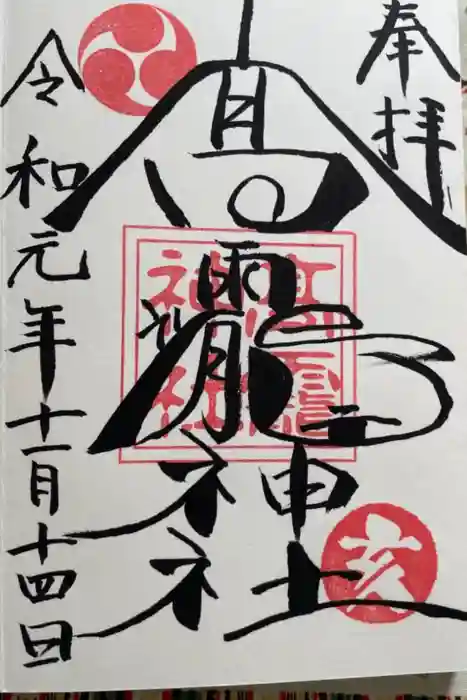 奉拝
高龗神社
高龗
神社
亥
令和元年十一月十四日